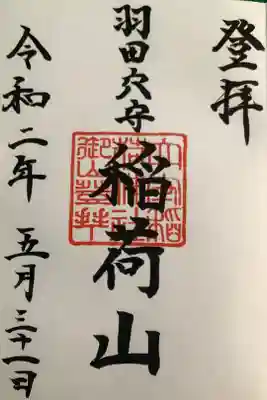 登拝
羽田穴守
稲荷山
令和二年 五月三十一日